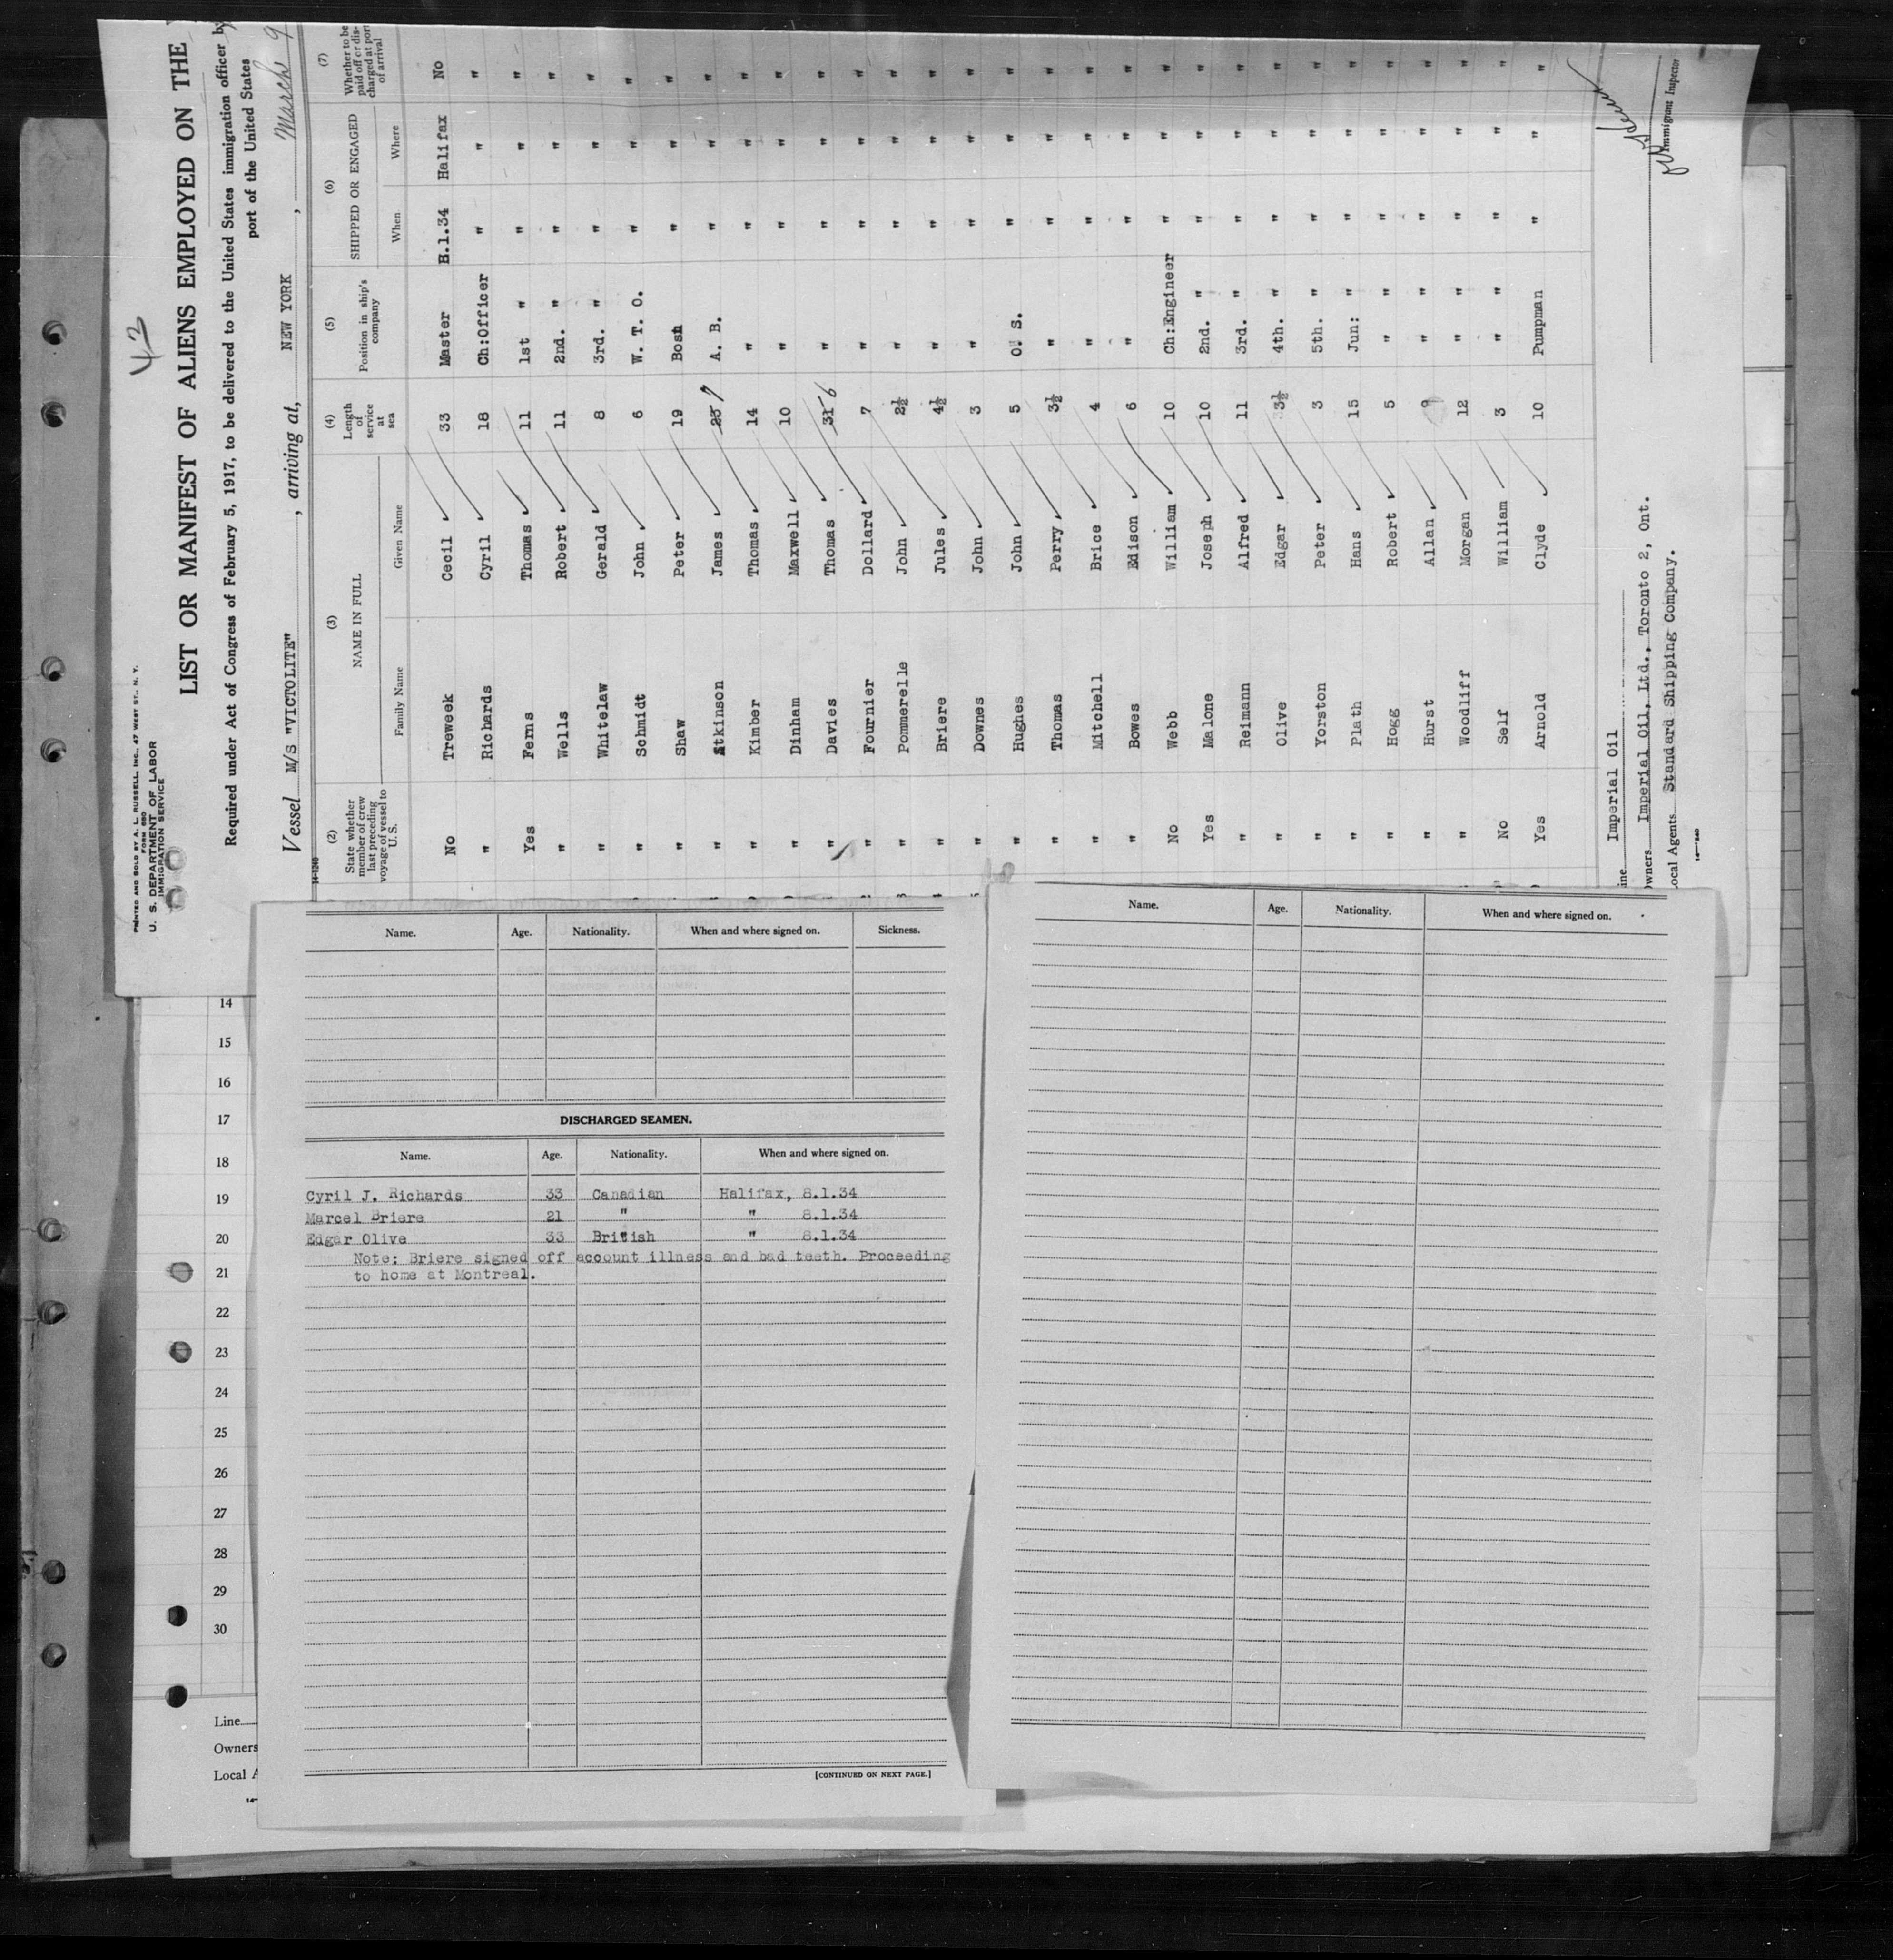 42
PRINTED AND SOLD BY A. L. RUSSELL, INC., 47 WEST ST., N. Y.
FORM 680
U. S. DEPARTMENT OF LABOR
IMMIGRATION SERVICE
LIST OR MANIFEST OF ALIENS EMPLOYED ON THE
Required under Act of Congress of February 5, 1917, to be delivered to the United States immigration officer by
port of the United States
Vessel M/S "VICTOLITE", arriving at, NEW YORK, March 9
14-1240
(2) (3) (4) (5) (6) (7)
State whether member of crew last preceding voyage of vessel to U. S. NAME IN FULL Length of service at sea Position in ship's company SHIPPED OR ENGAGED Whether to be paid off or discharged at port of arrival
Family Name Given Name When Where
No Treweek Cecil 33 Master 8.1.34 Halifax No
" Richards Cyril 18 Ch:Officer " " "
Yes Ferns Thomas 11 1st " " " "
" Wells Robert 11 2nd. " " " "
" Whitelaw Gerald 8 3rd. " " " "
" Schmidt John 6 W. T. O. " " "
" Shaw Peter 19 Bosn " " "
" Atkinson James 23 7 A. B. " " "
" Kimber Thomas 14 " " " "
" Dinham Maxwell 10 " " " "
" Davies Thomas 31 6 " " " "
" Fournier Dollard 7 " " " "
" Pommerelle John 2½ " " " "
" Briere Jules 4½ " " " "
" Downes John 3 " " " "
" Hughes John 5 O. S. " " "
" Thomas Perry 3½ " " " "
" Mitchell Brice 4 " " " "
" Bowes Edison 6 " " " "
No Webb William 10 Ch:Engineer " " "
Yes Malone Joseph 10 2nd. " " " "
" Reimann Alfred 11 3rd. " " " "
" Olive Edgar 3½ 4th. " " " "
" Yorston Peter 3 5th. " " " "
" Plath Hans 15 Jun: " " " "
" Hogg Robert 5 " " " " "
" Hurst Allan 9 " " " " "
" Woodliff Morgan 12 " " " " "
No Self William 3 " " " " "
Yes Arnold Clyde 10 Pumpman " " "
ine Imperial Oil
wners Imperial Oil, Ltd., Toronto 2, Ont.
ocal Agents Standard Shipping Company.
Immigrant Inspector
14-1240
Name. Age. Nationality. When and where signed on. Sickness.
DISCHARGED SEAMEN.
Name. Age. Nationality. When and where signed on.
Cyril J. Richards 33 Canadian Halifax, 8.1.34
Marcel Briere 21 " " 8.1.34
Edgar Olive 33 British " 8.1.34
Note: Briere signed off account illness and bad teeth. Proceeding
to home at Montreal.
[CONTINUED ON NEXT PAGE.]
Name. Age. Nationality. When and where signed on.
14
15
16
17
18
19
20
21
22
23
24
25
26
27
28
29
30
Line
Owners
Local A